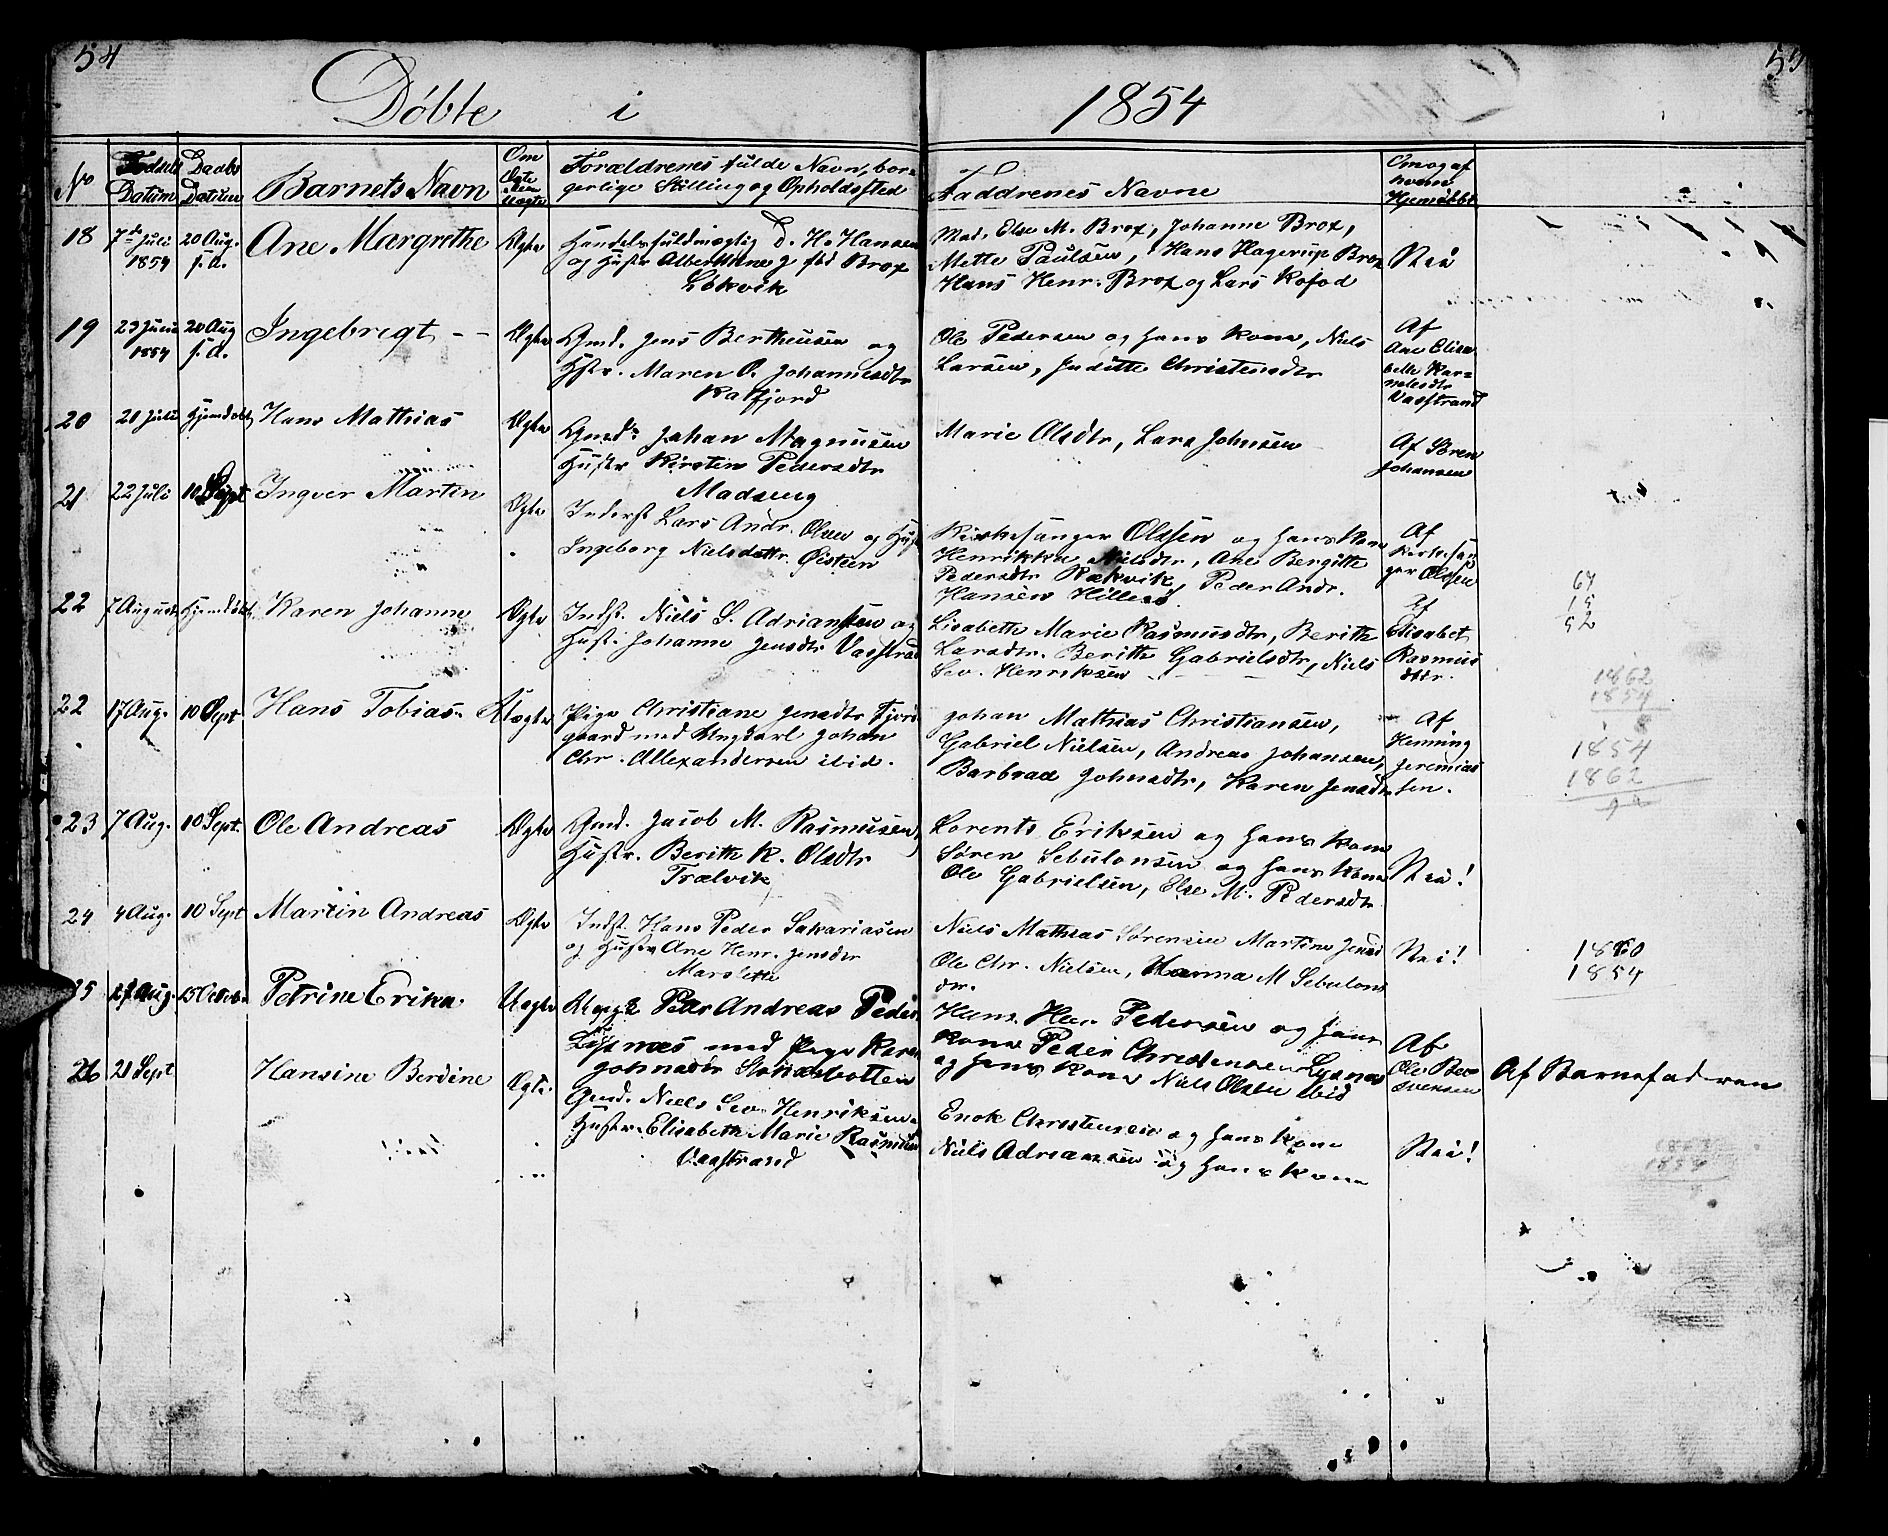 54
55
Döbte i 1854
No
Fødsels Datum
Daabs Datum
Barnets Navn
Om Ægte eller Uægte
Forældrenes fulde Navn, bor-
gerlige Stilling og Opholdssted
Faddrenes Navne
Om og af
hvem
Hjemdöbt
18
7de Juli
1854
20 Aug.
s. d.
Ane Margrethe
Ægte
Handelsfuldmægtig D. H. Hansen
og Hustr Alberthine J. föd Brox
Lökvik
Mad. Else M. Brox, Johanne Brox,
Mette Paulsen, Hans Hagerup Brox
Hans Henr. Brox og Lars Kofod
Nei
19
23 Juni
1854
20 Aug
s. d.
Ingebregt
Ægte
Gmd. Jens Bertheusen og
Hstr. Maren O. Johannesdtr
Katfjord
Ole Pedersen og hans Kone, Niels
Larsen, Juditte Christensdtr
Af
Ane Elisa
beth Kar-
nelesdtr
Vasstrand
20
20 Juli
Hjemdöbt
Hans Mathias
Ægte
Gmd. Johan Magnusen
Hustr Kirsten Pedersdtr
Madseng
Marie Olsdtr, Lars Johnsen
Af Sören
Johansen
21
22 Juli
10 Sept
Ingver Martin
Ægte
Inderst Lars Andr. Olsen og Hust
Ingeborg Nielsdattr. Öisteen
Kirkesanger Olssen og hans Kone
Henrikke Nielsdtr, Ane Bergitte
Pedersdtr Rækvik, Peder Andr.
Hansen Hillesö
Af
Kirkesan
ger Olssen
22
7 August
Hjemdöbt
Karen Johanne
Ægte
Indst. Niels S. Adriansen og
Hust. Johanne Jensdtr Vasstrand
Lisabeth Marie Rasmusdtr, Berith
Larsdtr. Beritte Gabrielsdtr, Niels
Sev. Henriksen
Af
Elisabet
Rasmus
dtr.
67
15
52
22
17 Aug.
10 Sept
Hans Tobias
Uægte
Pige Christiane Jensdtr Fjord
gaard med Ungkarl Johan
Chr. Allexandersen ibid.
Johan Mathias Christiansen,
Gabriel Nielsen, Andreas Johansen,
Barbraa Johnsdtr, Karen Jensdtr
Af
Henning
Jeremias
sen.
1862
1854
8
1854
1862
23
7 Aug.
10 Sept.
Ole Andreas
Ægte
Gmd. Jacob M. Rasmusen,
Hustr. Berith K. Olsdtr
Trælvik
Lorents Eriksen og hans Kone
Sören Sebulonsen og hans Kone
Ole Gabrielsen, Else M. Pedersdtr
Nei!
24
4 Aug.
10 Sept
Martin Andreas
Ægte
Indst. Hans Peder Sakariasen
og Hustr Ane Henr. Jensdtr
Marslette
Niels Mathias Sörensen Martine Jensd
Ole Chr. Nielsen, Hanna M Sebulons
dr.
Nei!
1880
1854
25
27 Aug.
15 Octob.
Petrine Erika
Uægte
Peder Andreas Peder
Lysnæs med Pige Karen
Johnsdtr
Hans Henr Pedersen og hans
Kone Peder Christensen Lysnæs
og hans Kone Niels Olsen ibid
Af
Ole Be-
svensen
Af Barnefaderen
26
21 Sept
Hansine Berdine
Ægte
Gmd. Niels Sev. Henriksen
Hustr. Elisabeth Marie Rasmus
Vasstrand
Enok Christensen og hans Kone
Niels Adriansen og hans Kone
Nei!
1854